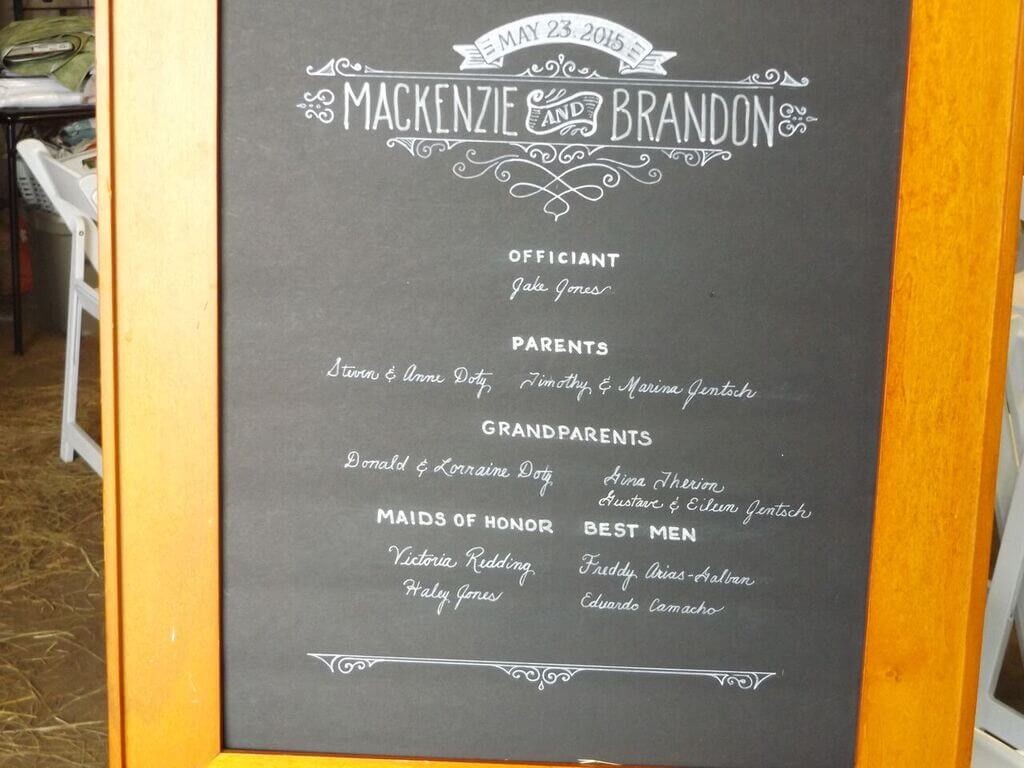 MAY 23. 2015
MACKENZIE AND BRANDON
OFFICIANT
Jake Jones
PARENTS
Steven & Anne Doty Timothy & Marina Jentsch
GRANDPARENTS
Donald & Lorraine Doty Gina Therion
Gustave & Eileen Jentsch
MAIDS OF HONOR BEST MEN
Victoria Redding Freddy Arias-Galban
Haley Jones Eduardo Camacho